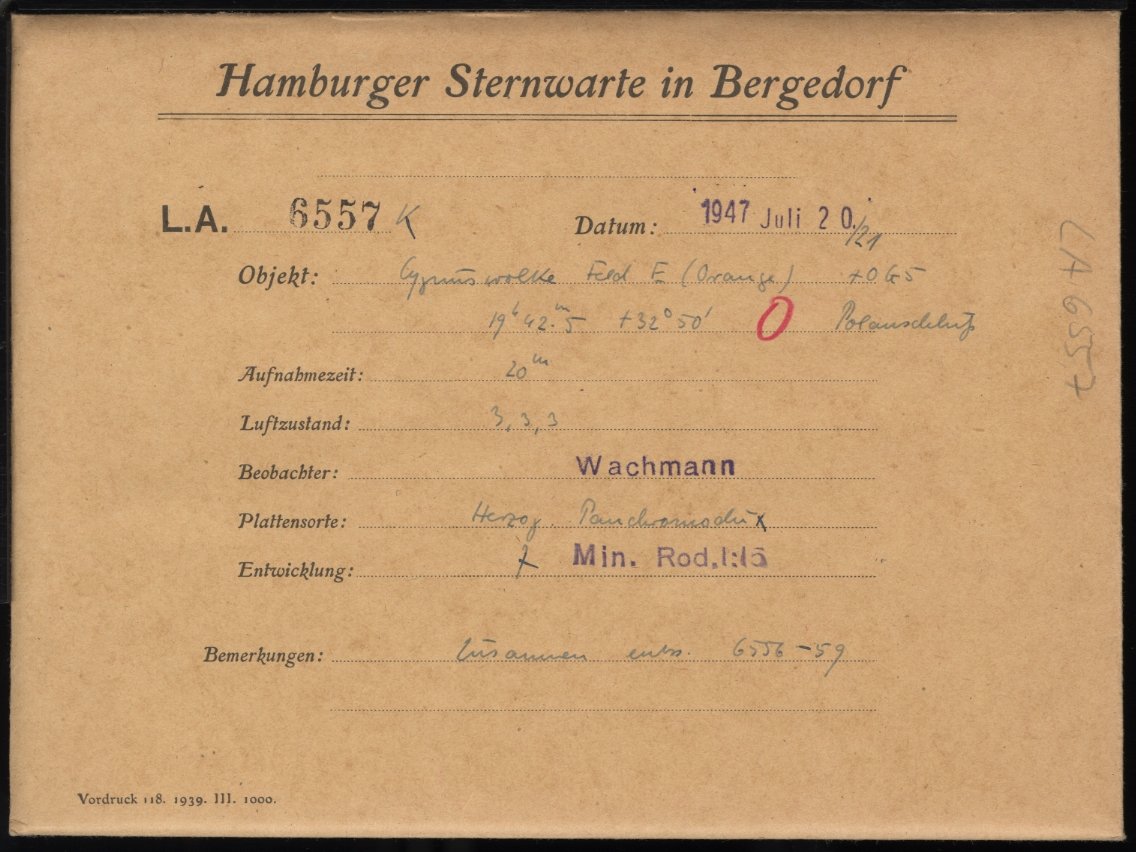 Hamburger Sternwarte in Bergedorf
L.A. 6557 K
Datum: 1947 Juli 20./21
Objekt: Cygnuswolke Feld E (Orange) + OG5
19ʰ42.ᵐ5 +32° 50' O Polanschluß
Aufnahmezeit: 20ᵐ
Luftzustand: 3, 3, 3
Beobachter: Wachmann
Plattensorte: Herzog Panchromodux
Entwicklung: 7 Min. Rod,1:15
Bemerkungen: Zusammen entw. 6556-59
Vordruck 118. 1939. III. 1000.
LA 6557